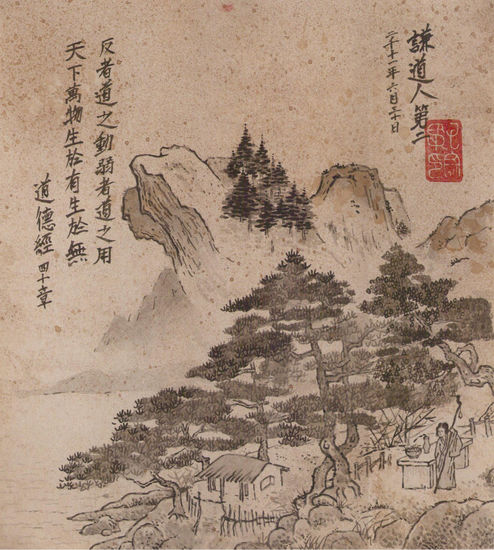 謙道人第二
二千十一年六月三十日
反者道之動弱者道之用
天下萬物生於有生於無
道德經四十章